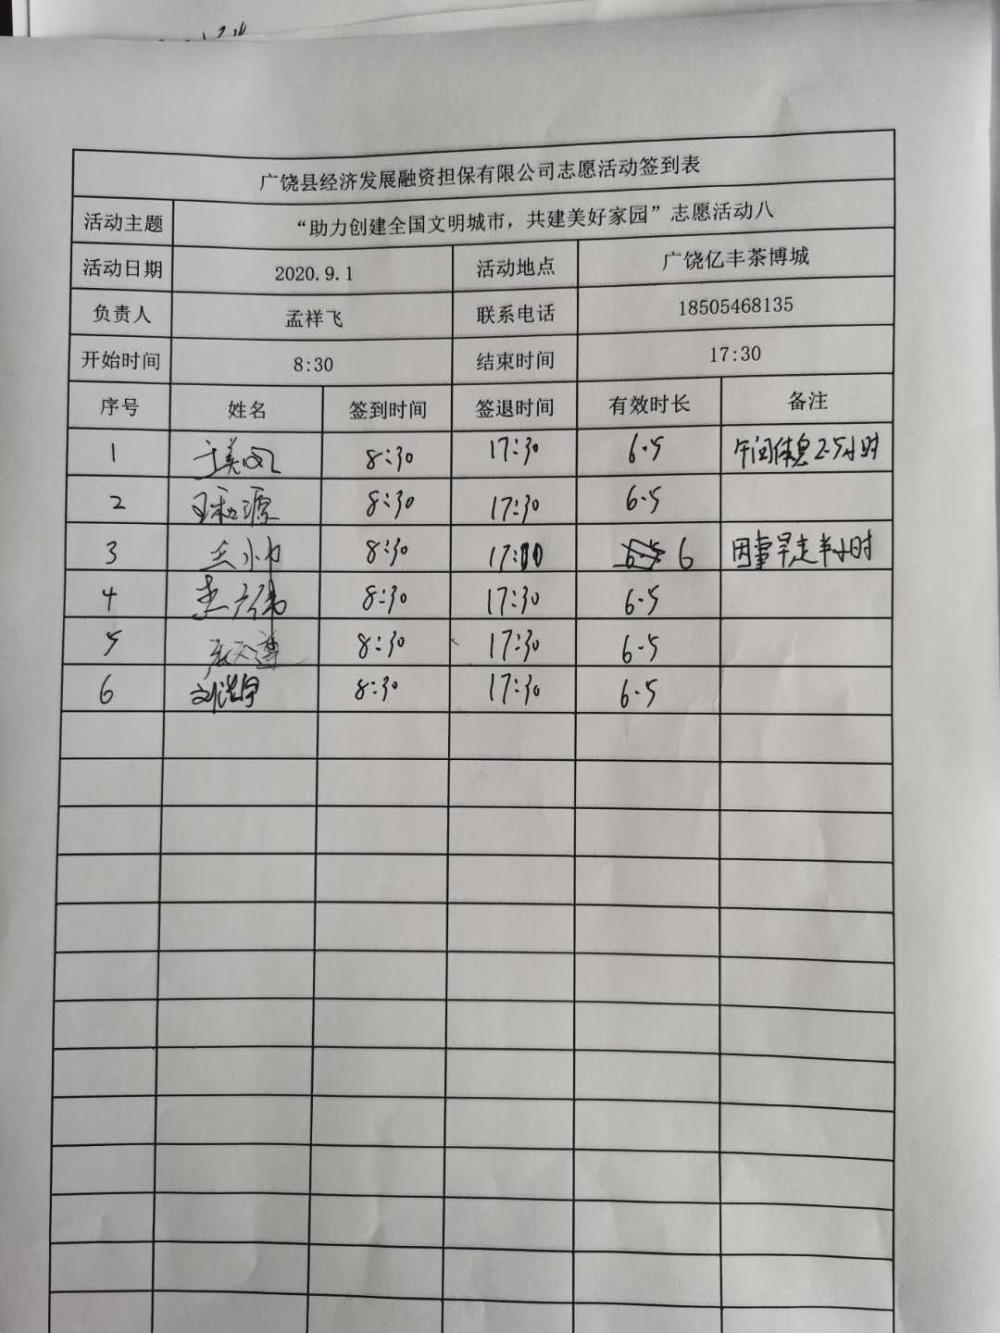 广饶县经济发展融资担保有限公司志愿活动签到表
活动主题 “助力创建全国文明城市，共建美好家园”志愿活动八
活动日期 2020.9.1 活动地点 广饶亿丰茶博城
负责人 孟祥飞 联系电话 18505468135
开始时间 8:30 结束时间 17:30
序号 姓名 签到时间 签退时间 有效时长 备注
1 8:30 17:30 6.5 午间休息2.5小时
2 8:30 17:30 6.5
3 8:30 17:00 6 因事早走半小时
4 8:30 17:30 6.5
5 8:30 17:30 6.5
6 8:30 17:30 6.5